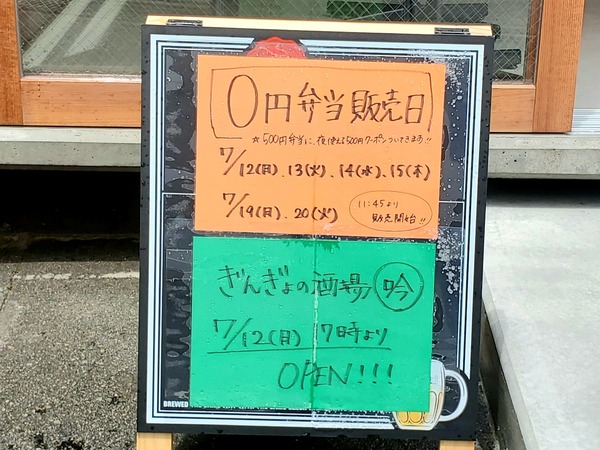 0円弁当販売日
☆500円弁当に、夜使える500円クーポンついてきます!!
7/12(月).13(火).14(水).15(木)
7/19(月).20(火)
11:45より
販売開始!!
ぎんぎょの酒場 吟
7/12(月) 17時より
OPEN!!!
BREWED